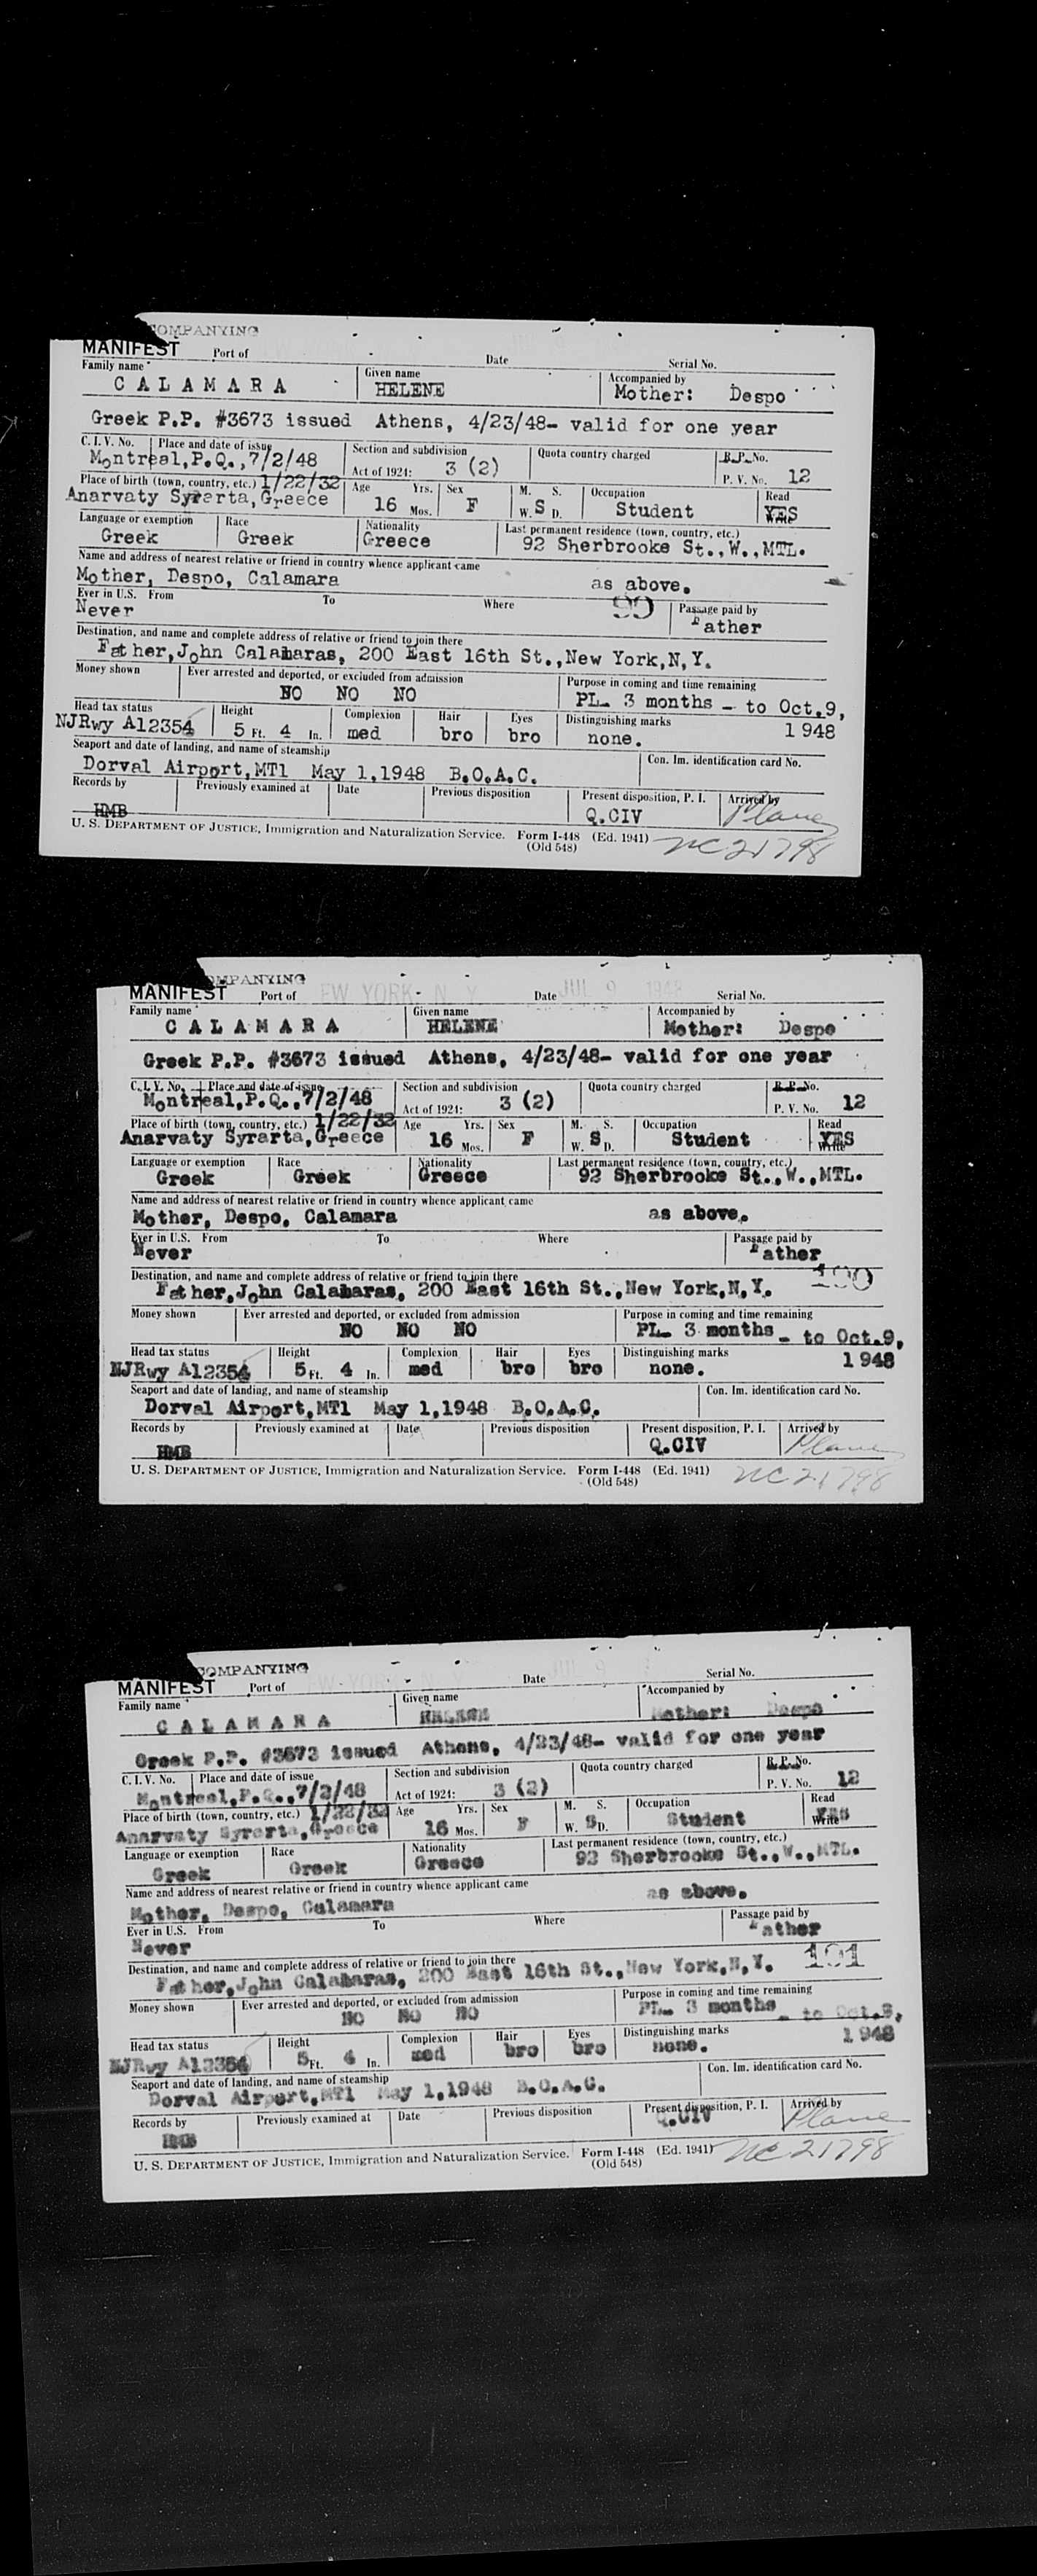 COMPANYING
MANIFEST Port of Date Serial No.
Family name Given name Accompanied by
CALAMARA HELENE Mother: Despo
Greek P.P. #3673 issued Athens, 4/23/48- valid for one year
C. I. V. No. Place and date of issue Section and subdivision Quota country charged R.P. No.
Montreal,P.Q.,7/2/48 Act of 1924: 3 (2) P. V. No. 12
Place of birth (town, country, etc.) 1/22/32 Age Yrs. Sex M. S. Occupation Read
Anarvaty Syrarta, Greece 16 Mos. F W. S D. Student YES Write
Language or exemption Race Nationality Last permanent residence (town, country, etc.)
Greek Greek Greece 92 Sherbrooke St.,W.,MTL.
Name and address of nearest relative or friend in country whence applicant came
Mother, Despo, Calamara as above.
Ever in U.S. From To Where 99 Passage paid by
Never Father
Destination, and name and complete address of relative or friend to join there
Father,John Calamaras, 200 East 16th St.,New York,N,Y.
Money shown Ever arrested and deported, or excluded from admission Purpose in coming and time remaining
NO NO NO PL- 3 months - to Oct.9,
Head tax status Height Complexion Hair Eyes Distinguishing marks 1948
NJRwy A12354 5 Ft. 4 In. med bro bro none.
Seaport and date of landing, and name of steamship Con. Im. identification card No.
Dorval Airport,MTl May 1,1948 B.O.A.C.
Records by Previously examined at Date Previous disposition Present disposition, P. I. Arrived by
HMB Q.CIV Plane
U. S. DEPARTMENT OF JUSTICE, Immigration and Naturalization Service. Form I-448 (Ed. 1941) NC21798
(Old 548)
OMPANYING
MANIFEST Port of EW YORK, N. Y. Date JUL 9 1948 Serial No.
Family name Given name Accompanied by
CALAMARA HELENE Mother: Despo
Greek P.P. #3673 issued Athens, 4/23/48- valid for one year
C. I. V. No. Place and date of issue Section and subdivision Quota country charged R.P. No.
Montreal,P.Q.,7/2/48 Act of 1924: 3 (2) P. V. No. 12
Place of birth (town, country, etc.) 1/22/32 Age Yrs. Sex M. S. Occupation Read
Anarvaty Syrarta, Greece 16 Mos. F W. S D. Student YES Write
Language or exemption Race Nationality Last permanent residence (town, country, etc.)
Greek Greek Greece 92 Sherbrooke St.,W.,MTL.
Name and address of nearest relative or friend in country whence applicant came
Mother, Despo, Calamara as above.
Ever in U.S. From To Where Passage paid by
Never Father
Destination, and name and complete address of relative or friend to join there 100
Father,John Calamaras, 200 East 16th St.,New York,N,Y.
Money shown Ever arrested and deported, or excluded from admission Purpose in coming and time remaining
NO NO NO PL- 3 months - to Oct.9,
Head tax status Height Complexion Hair Eyes Distinguishing marks 1948
NJRwy A12354 5 Ft. 4 In. med bro bro none.
Seaport and date of landing, and name of steamship Con. Im. identification card No.
Dorval Airport,MTl May 1,1948 B.O.A.C.
Records by Previously examined at Date Previous disposition Present disposition, P. I. Arrived by
HMB Q.CIV Plane
U. S. DEPARTMENT OF JUSTICE, Immigration and Naturalization Service. Form I-448 (Ed. 1941) NC21798
(Old 548)
COMPANYING
MANIFEST Port of EW YORK, N. Y. Date JUL 9 Serial No.
Family name Given name Accompanied by
CALAMARA HELENE Mother: Despo
Greek P.P. #3673 issued Athens, 4/23/48- valid for one year
C. I. V. No. Place and date of issue Section and subdivision Quota country charged R.P. No.
Montreal,P.Q.,7/2/48 Act of 1924: 3 (2) P. V. No. 12
Place of birth (town, country, etc.) 1/22/32 Age Yrs. Sex M. S. Occupation Read
Anarvaty Syrarta, Greece 16 Mos. F W. S D. Student YES Write
Language or exemption Race Nationality Last permanent residence (town, country, etc.)
Greek Greek Greece 92 Sherbrooke St.,W.,MTL.
Name and address of nearest relative or friend in country whence applicant came
Mother, Despo, Calamara as above.
Ever in U.S. From To Where Passage paid by
Never Father
Destination, and name and complete address of relative or friend to join there 101
Father,John Calamaras, 200 East 16th St.,New York,N,Y.
Money shown Ever arrested and deported, or excluded from admission Purpose in coming and time remaining
NO NO NO PL- 3 months - to Oct.9,
Head tax status Height Complexion Hair Eyes Distinguishing marks 1948
NJRwy A12354 5 Ft. 4 In. med bro bro none.
Seaport and date of landing, and name of steamship Con. Im. identification card No.
Dorval Airport,MTl May 1,1948 B.O.A.C.
Records by Previously examined at Date Previous disposition Present disposition, P. I. Arrived by
HMB Q.CIV Plane
U. S. DEPARTMENT OF JUSTICE, Immigration and Naturalization Service. Form I-448 (Ed. 1941) NC21798
(Old 548)